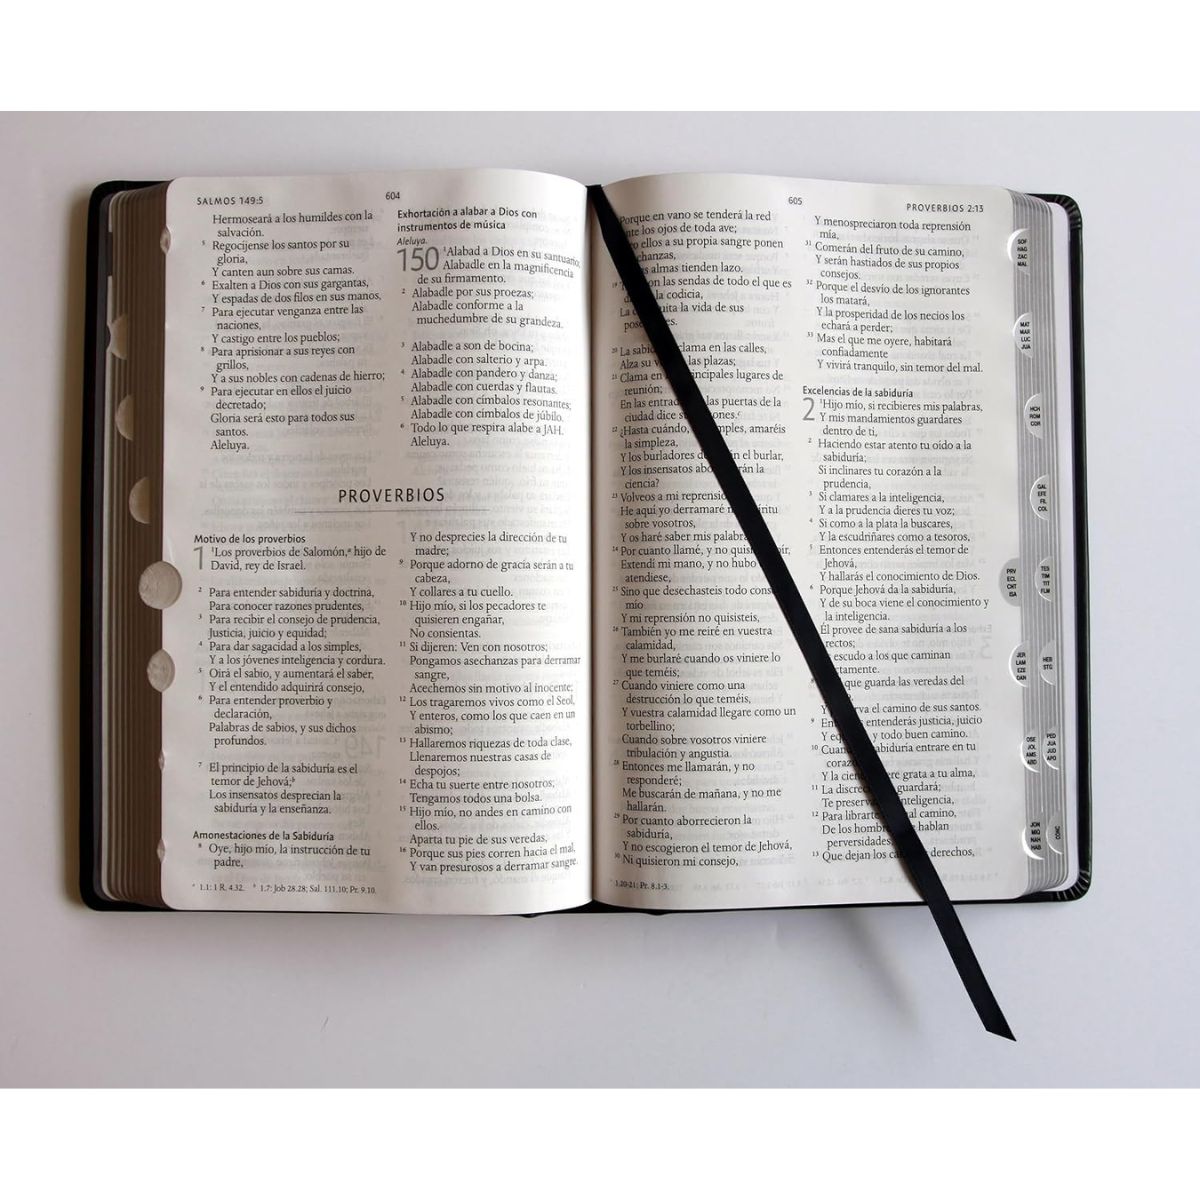 SALMOS 149:5
604
Hermoseará a los humildes con la
salvación.
5 Regocíjense los santos por su
gloria,
Y canten aun sobre sus camas.
6 Exalten a Dios con sus gargantas,
Y espadas de dos filos en sus manos,
7 Para ejecutar venganza entre las
naciones,
Y castigo entre los pueblos;
8 Para aprisionar a sus reyes con
grillos,
Y a sus nobles con cadenas de hierro;
9 Para ejecutar en ellos el juicio
decretado;
Gloria será esto para todos sus
santos.
Aleluya.
Exhortación a alabar a Dios con
instrumentos de música
Aleluya.
150 1Alabad a Dios en su santuario;
Alabadle en la magnificencia
de su firmamento.
2 Alabadle por sus proezas;
Alabadle conforme a la
muchedumbre de su grandeza.
3 Alabadle a son de bocina;
Alabadle con salterio y arpa.
4 Alabadle con pandero y danza;
Alabadle con cuerdas y flautas.
5 Alabadle con címbalos resonantes;
Alabadle con címbalos de júbilo.
6 Todo lo que respira alabe a JAH.
Aleluya.
PROVERBIOS
Motivo de los proverbios
1 1Los proverbios de Salomón,a hijo de
David, rey de Israel.
2 Para entender sabiduría y doctrina,
Para conocer razones prudentes,
3 Para recibir el consejo de prudencia,
Justicia, juicio y equidad;
4 Para dar sagacidad a los simples,
Y a los jóvenes inteligencia y cordura.
5 Oirá el sabio, y aumentará el saber,
Y el entendido adquirirá consejo,
6 Para entender proverbio y
declaración,
Palabras de sabios, y sus dichos
profundos.
7 El principio de la sabiduría es el
temor de Jehová;b
Los insensatos desprecian la
sabiduría y la enseñanza.
Amonestaciones de la Sabiduría
8 Oye, hijo mío, la instrucción de tu
padre,
Y no desprecies la dirección de tu
madre;
9 Porque adorno de gracia serán a tu
cabeza,
Y collares a tu cuello.
10 Hijo mío, si los pecadores te
quisieren engañar,
No consientas.
11 Si dijeren: Ven con nosotros;
Pongamos asechanzas para derramar
sangre,
Acechemos sin motivo al inocente;
12 Los tragaremos vivos como el Seol,
Y enteros, como los que caen en un
abismo;
13 Hallaremos riquezas de toda clase,
Llenaremos nuestras casas de
despojos;
14 Echa tu suerte entre nosotros;
Tengamos todos una bolsa.
15 Hijo mío, no andes en camino con
ellos.
Aparta tu pie de sus veredas,
16 Porque sus pies corren hacia el mal,
Y van presurosos a derramar sangre.
a 1.1: 1 R. 4.32. b 1.7: Job 28.28; Sal. 111.10; Pr. 9.10.
605
PROVERBIOS 2:13
Porque en vano se tenderá la red
los ojos de toda ave;
ellos a su propia sangre ponen
almas tienden lazo.
19 son las sendas de todo el que es
la codicia,
la vida de sus
20 La clama en las calles,
Alza su las plazas;
21 Clama en lugares de
reunión;
En las las puertas de la
ciudad dice
22 ¿Hasta cuándo, amaréis
la simpleza,
Y los burladores el burlar,
Y los insensatos la
ciencia?
23 Volveos a mi
He aquí yo derramaré
sobre vosotros,
Y os haré saber mis
Por cuanto llamé, y no
Extendí mi mano, y no hubo
atendiese,
25 Sino que desechasteis todo
mío
Y mi reprensión no quisisteis,
26 También yo me reiré en vuestra
calamidad,
Y me burlaré cuando os viniere lo
que teméis;
27 Cuando viniere como una
destrucción lo que teméis,
Y vuestra calamidad llegare como un
torbellino;
Cuando sobre vosotros viniere
tribulación y angustia.
28 Entonces me llamarán, y no
responderé;
Me buscarán de mañana, y no me
hallarán.
29 Por cuanto aborrecieron la
sabiduría,
Y no escogieron el temor de Jehová,
30 Ni quisieron mi consejo,
1.20-21: Pr. 8.1-3.
Y menospreciaron toda reprensión
mía,
31 Comerán del fruto de su camino,
Y serán hastiados de sus propios
consejos.
32 Porque el desvío de los ignorantes
los matará,
Y la prosperidad de los necios los
echará a perder;
33 Mas el que me oyere, habitará
confiadamente
Y vivirá tranquilo, sin temor del mal.
Excelencias de la sabiduría
2 1Hijo mío, si recibieres mis palabras,
Y mis mandamientos guardares
dentro de ti,
2 Haciendo estar atento tu oído a la
sabiduría;
Si inclinares tu corazón a la
prudencia,
3 Si clamares a la inteligencia,
Y a la prudencia dieres tu voz;
4 Si como a la plata la buscares,
Y la escudriñares como a tesoros,
5 Entonces entenderás el temor de
Jehová,
Y hallarás el conocimiento de Dios.
6 Porque Jehová da la sabiduría,
Y de su boca viene el conocimiento y
la inteligencia.
Él provee de sana sabiduría a los
rectos;
escudo a los que caminan
que guarda las veredas del
el camino de sus santos.
9 entenderás justicia, juicio
Y y todo buen camino.
10 sabiduría entrare en tu
Y la grata a tu alma,
11 La guardará;
Te inteligencia,
12 Para librarte camino,
De los hablan
perversidades,
13 Que dejan los derechos,
SOF
HAG
ZAC
MAL
MAT
MAR
LUC
JUA
HCH
ROM
COR
GAL
EFE
FIL
COL
PRV
ECL
CNT
ISA
TES
TIM
TIT
FLM
JER
LAM
EZE
DAN
HEB
STG
OSE
JOL
AMS
ABD
PED
JUA
JUD
APO
JON
MIQ
NAH
HAB
CONC